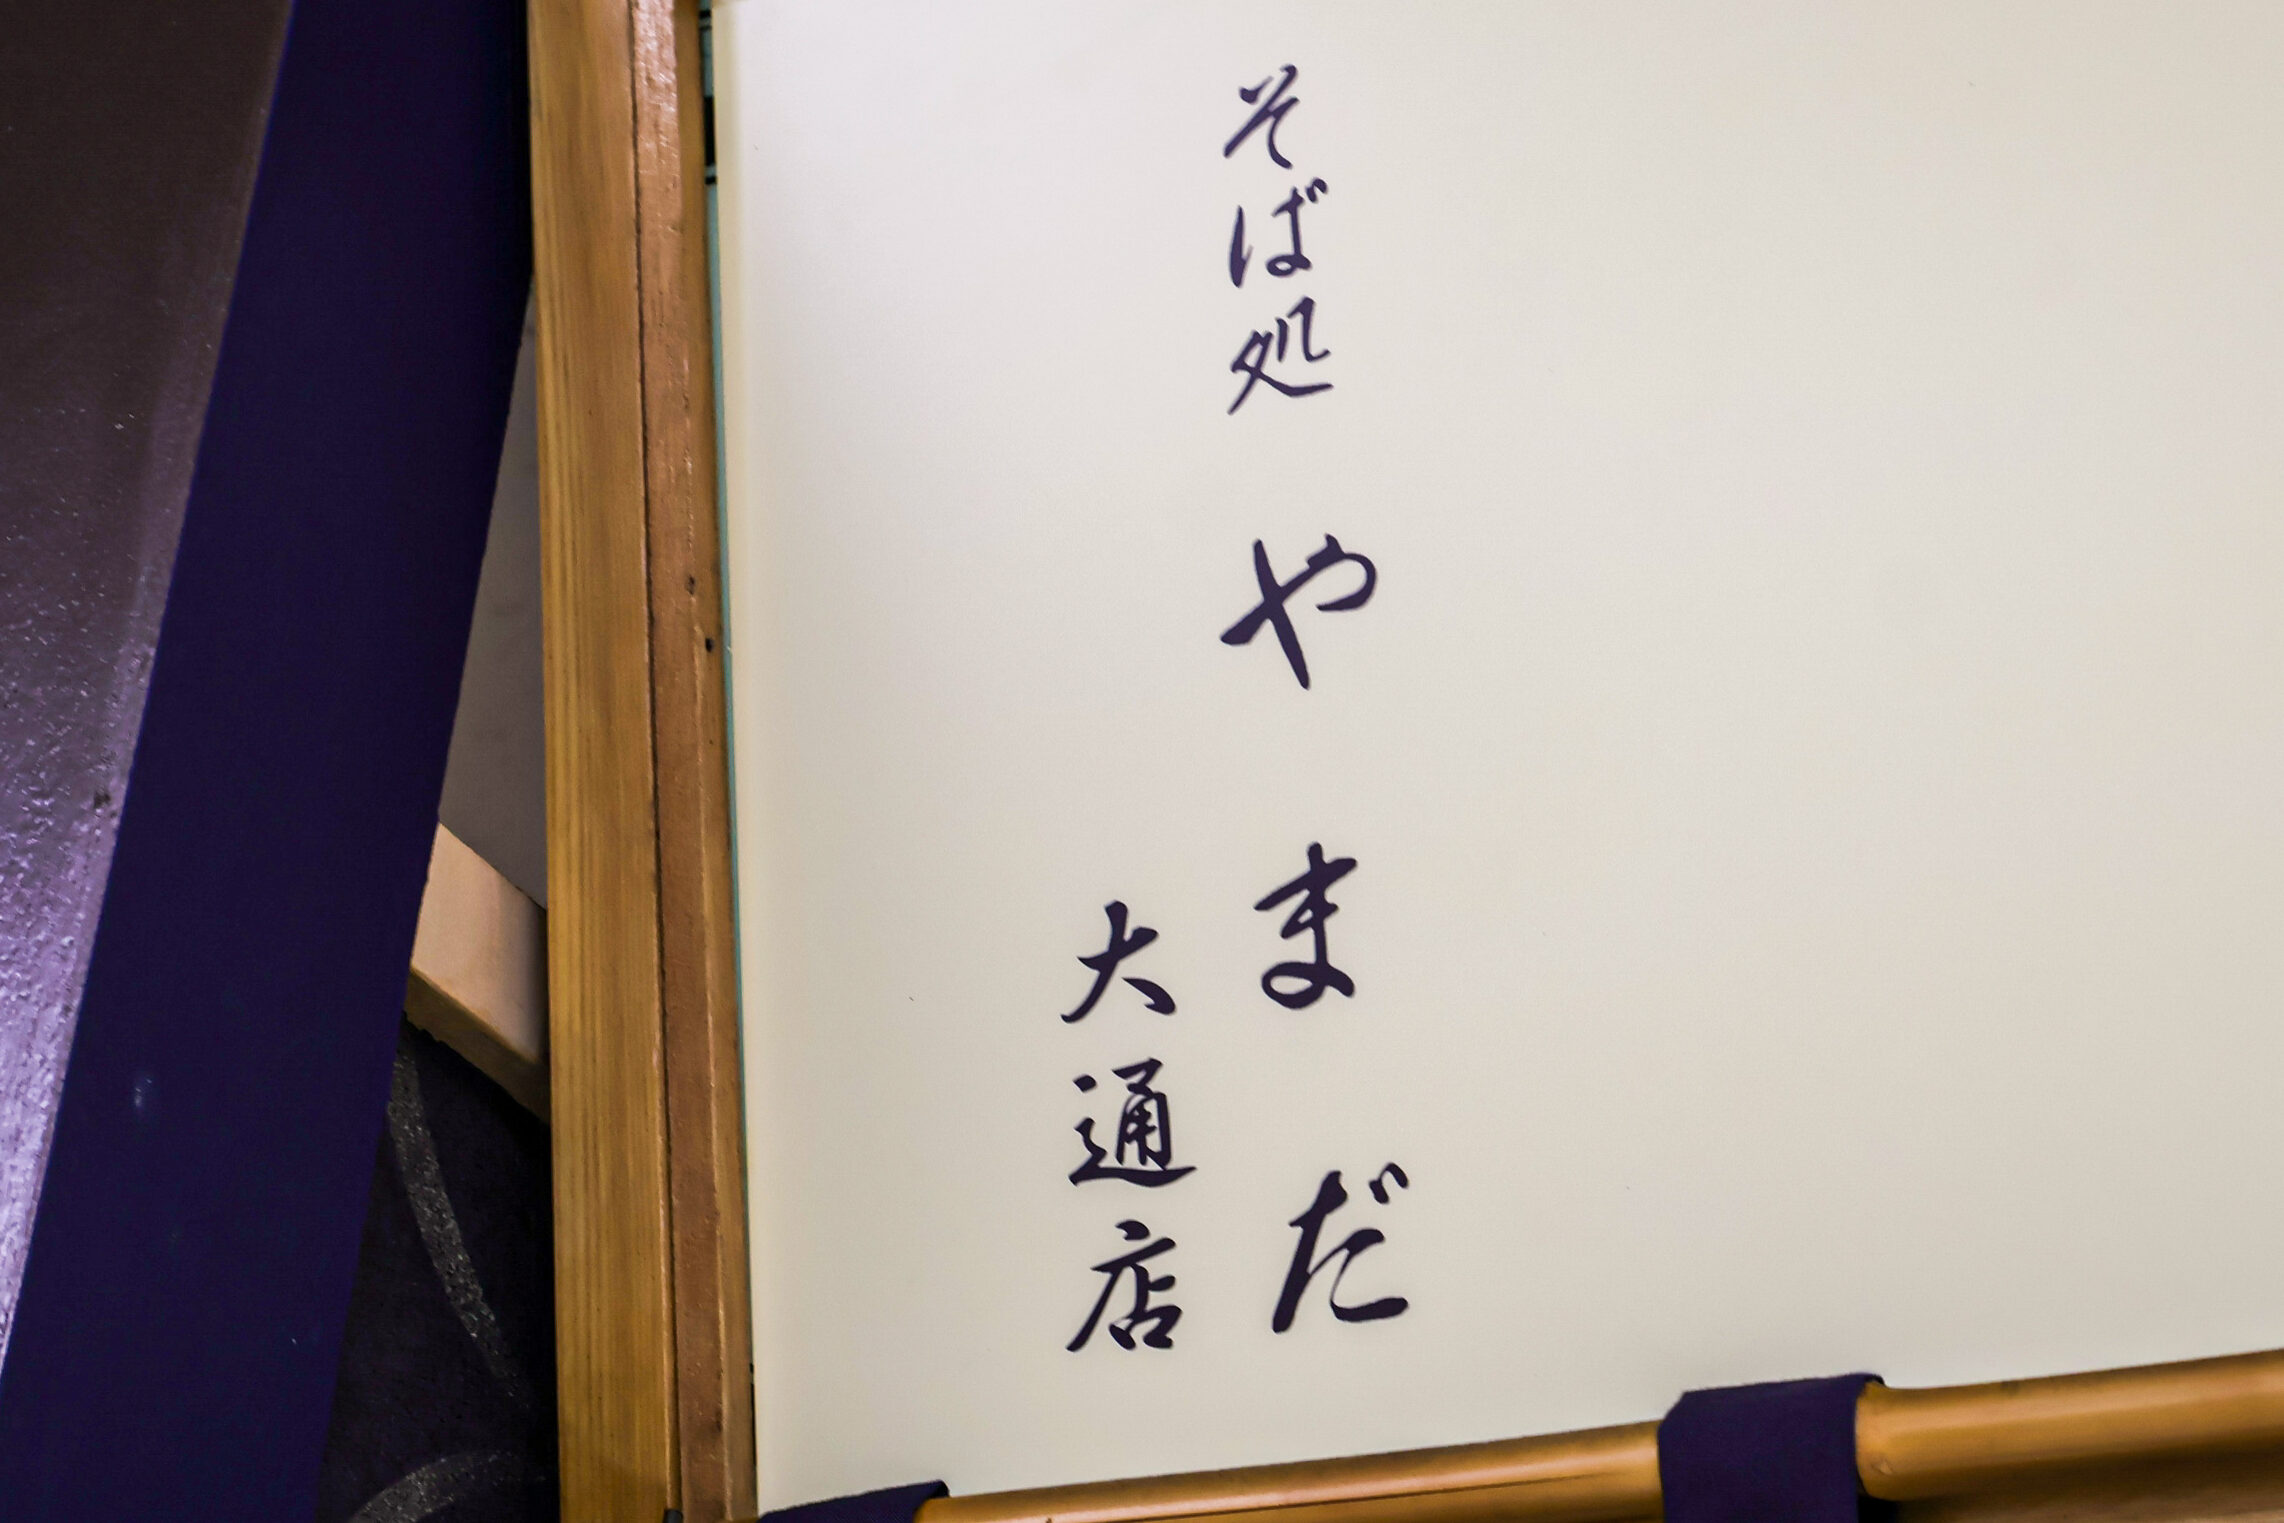 そば処 やまだ
大通店